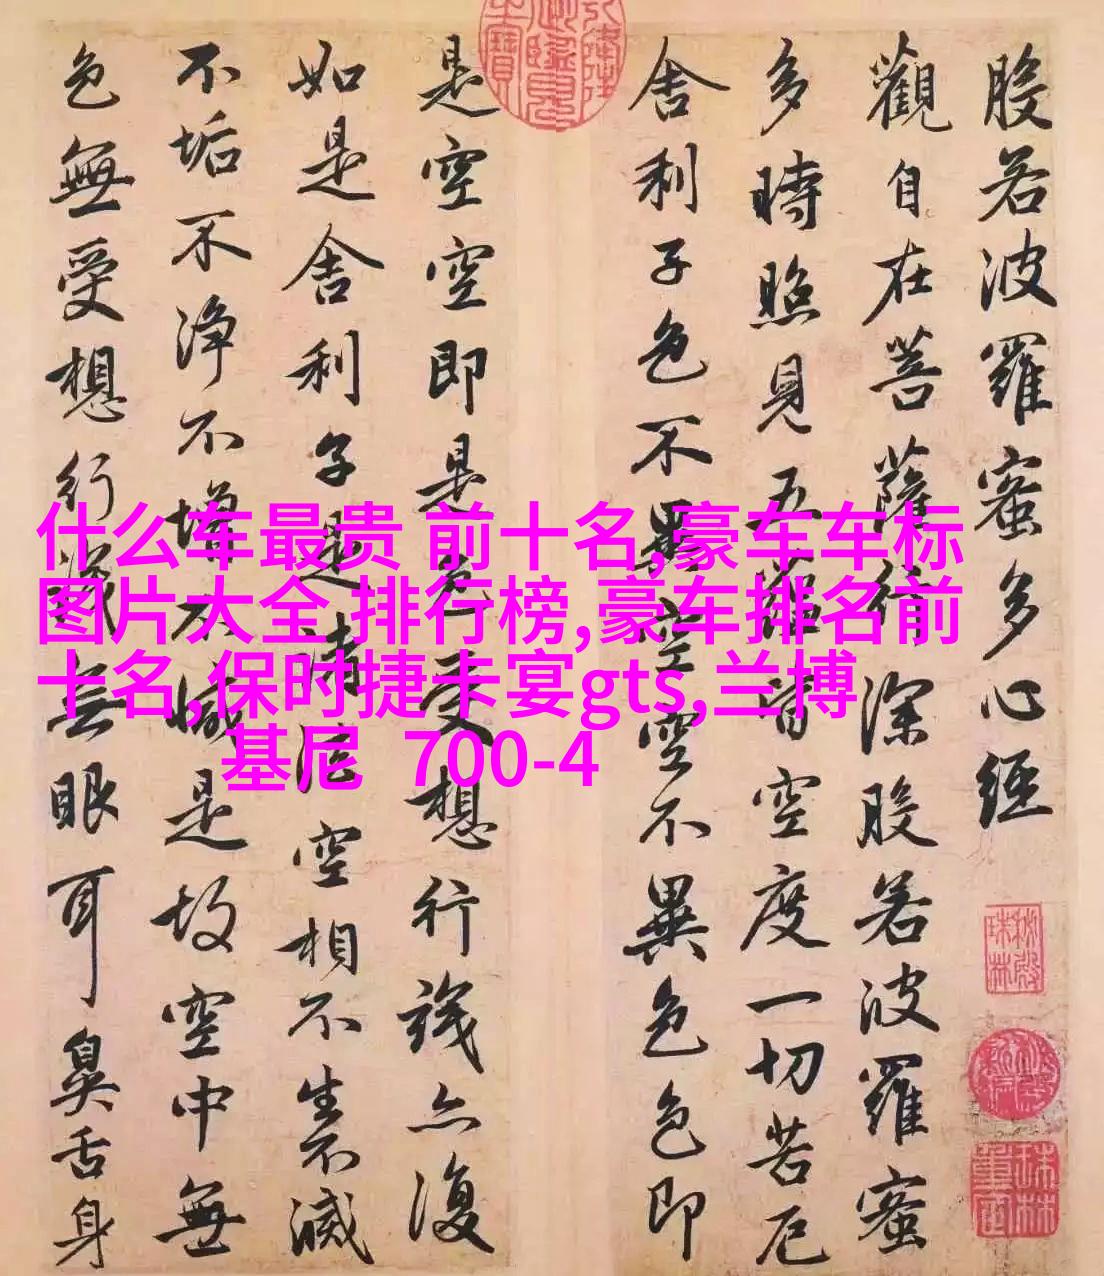 般若波羅蜜多心經
觀自在菩薩行深般若波羅蜜
多時照見五蘊皆空度一切苦厄
舍利子色不異空空不異色色即
是空空即是色受想行識亦復
如是舍利子是諸法空相不生不滅
不垢不淨不增不減是故空中無
色無受想行識無眼耳鼻舌身
什么车最贵 前十名,豪车车标
图片大全 排行榜,豪车排名前
十名,保时捷卡宴gts,兰博
基尼 700-4